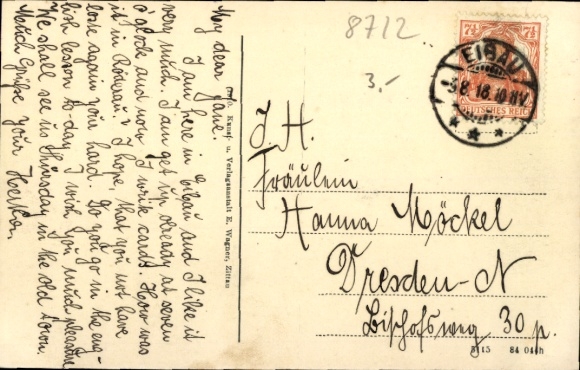 My dear Jane.
I am here in Eibau and I like it
very much. I am get up already at seven
o'clock and now I write cards. How was
it in Röderau? I hope, that you not have
lose again your hand. Do you go in the eng-
lish lesson to-day. I wish you much pleasure
We shall see us Thursday in the old town.
Grüße your Hertha.
8712
3.-
7½ 7½
DEUTSCHES REICH
EIBAU
3.8.18.10-11V.
Kunst- u. Verlagsanstalt E. Wagner, Zittau
J. H.
Fräulein
Hanna Möckel
Dresden-N
Bischofsweg 30 p.
84